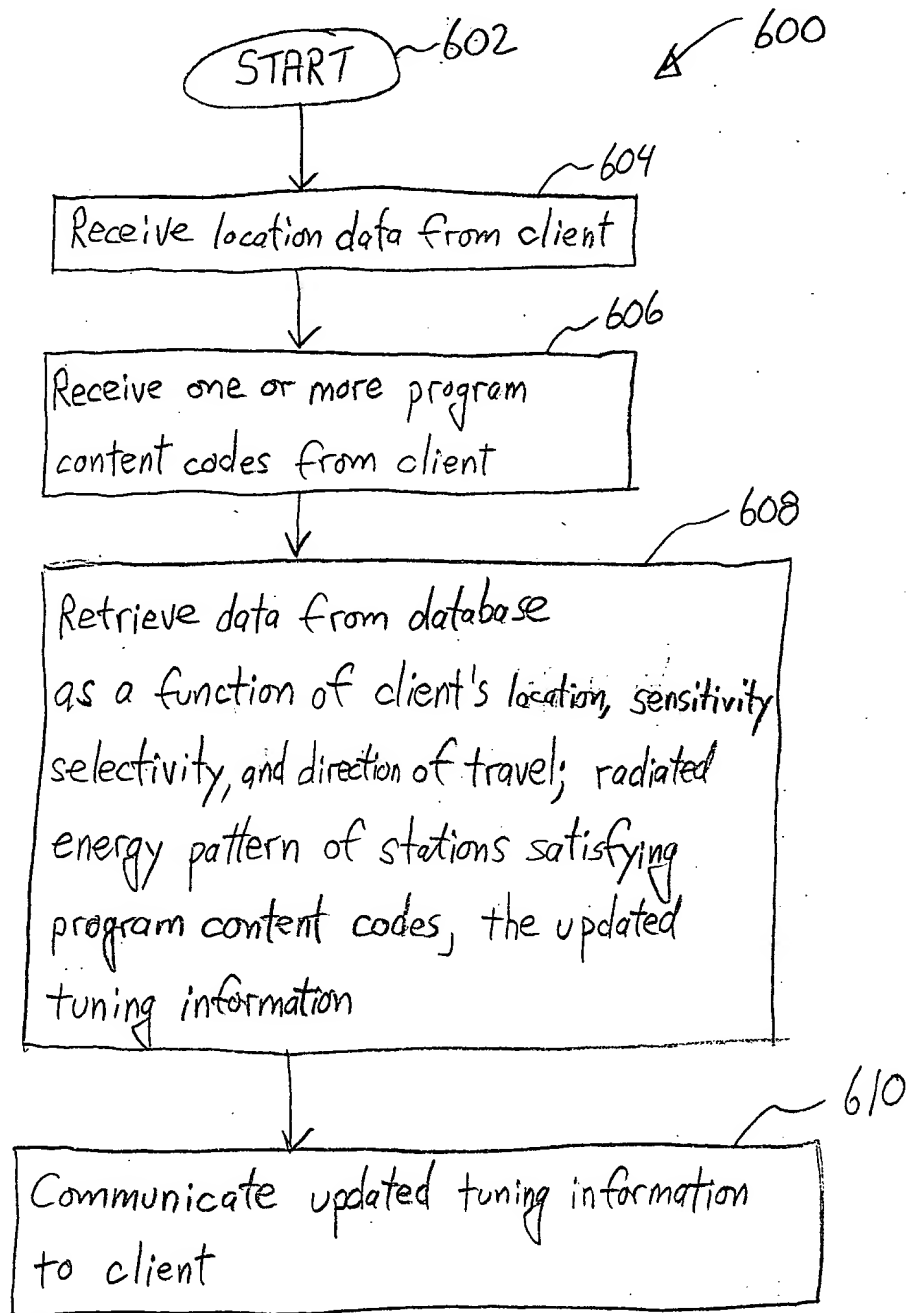 600
START
602
604
Receive location data from client
606
Receive one or more program
content codes from client
608
Retrieve data from database
as a function of client's location, sensitivity
selectivity, and direction of travel; radiated
energy pattern of stations satisfying
program content codes, the updated
tuning information
610
Communicate updated tuning information
to client